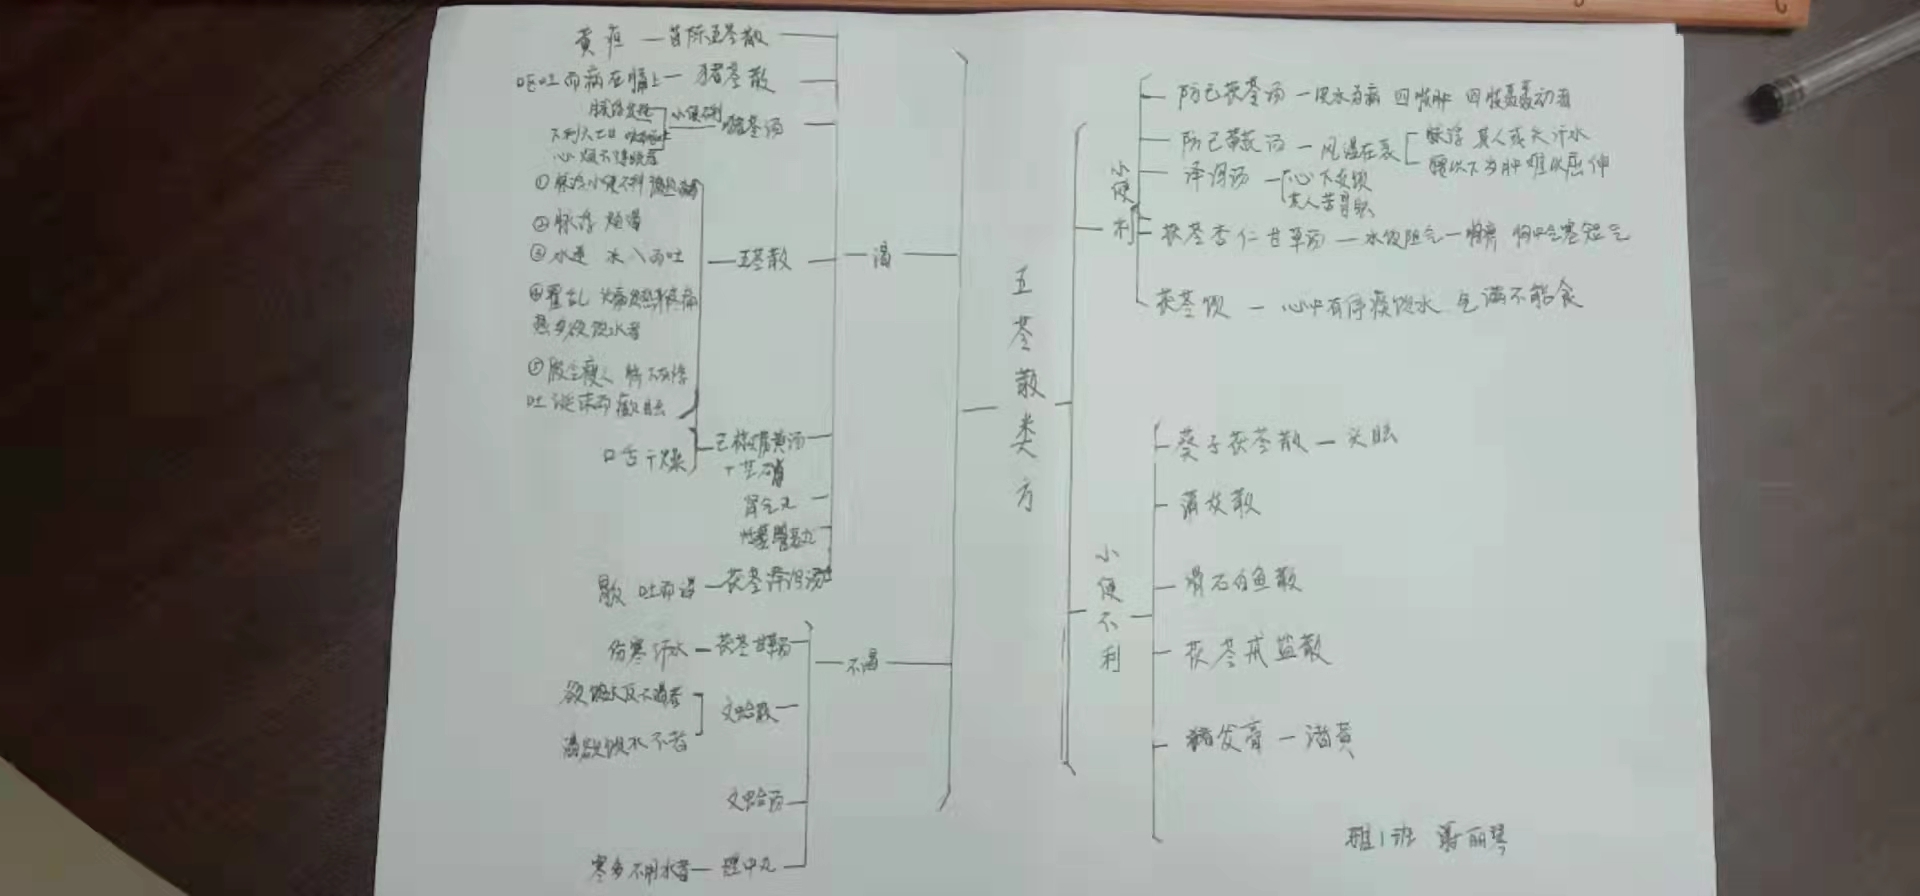 黄疸 — 茵陈五苓散
呕吐而病在膈上 — 猪苓散
脉浮发热
小便不利
猪苓汤
心烦不得眠者
①脉浮小便不利微热消渴
②脉浮 烦渴
③水逆 水入而吐
④霍乱 头痛发热身疼痛
热多欲饮水者
⑤脐
瘦人
吐涎沫而癫眩
五苓散
渴
口舌干燥
己椒苈黄汤
+芒硝
肾气丸
吐而渴 — 茯苓泽泻汤
伤寒汗水 — 茯苓甘草汤
不渴
欲饮水反不渴者
渴欲饮水不
者
文蛤散
文蛤汤
寒多不用水者 — 理中丸
五苓散类方
小便利
防己茯苓汤 — 皮水为病 四肢肿 四肢聂聂动者
防己黄芪汤 — 风湿在表
脉浮 其人或头汗水
腰以下为肿 难以屈伸
泽泻汤
心下支饮
其人苦冒眩
茯苓杏仁甘草汤 — 水饮阻气 — 胸痹 胸中气塞短气
茯苓饮 — 心中有停痰饮水 气满不能食
小便不利
葵子茯苓散 — 头眩
蒲灰散
滑石白鱼散
茯苓戎盐散
猪发膏 — 诸黄
1班
丽琴